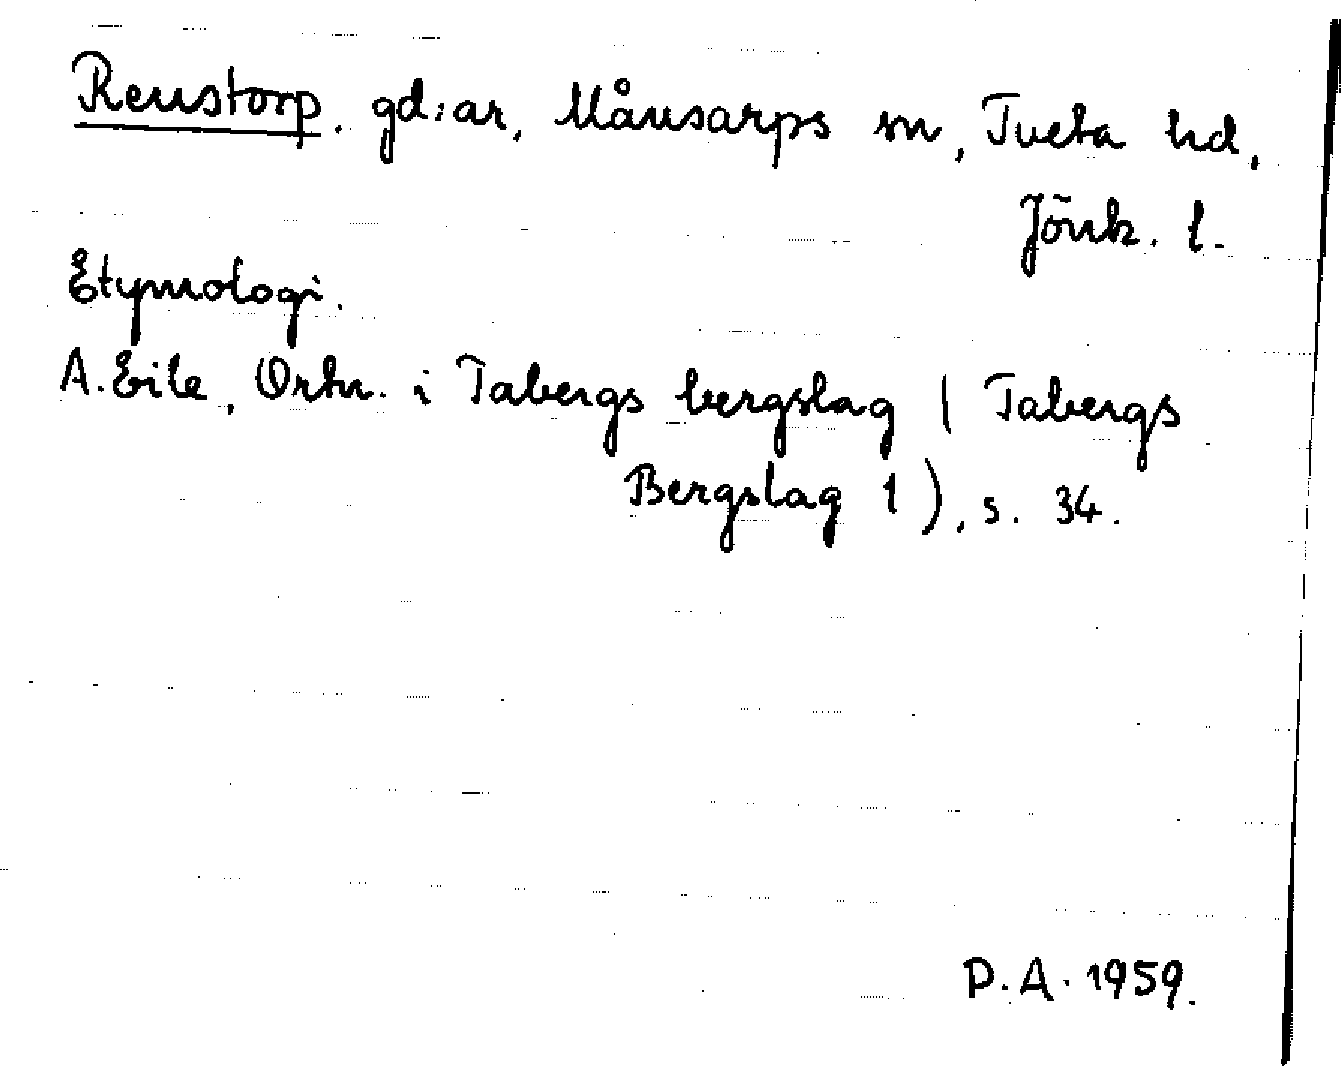 Renstorp. gd:ar, Månsarps sn, Tveta hd,
Jönk. l.
Etymologi.
A. Eile, Ortn. i Tabergs bergslag ( Tabergs
Bergslag 1 ), s. 34.
P.A. 1959.